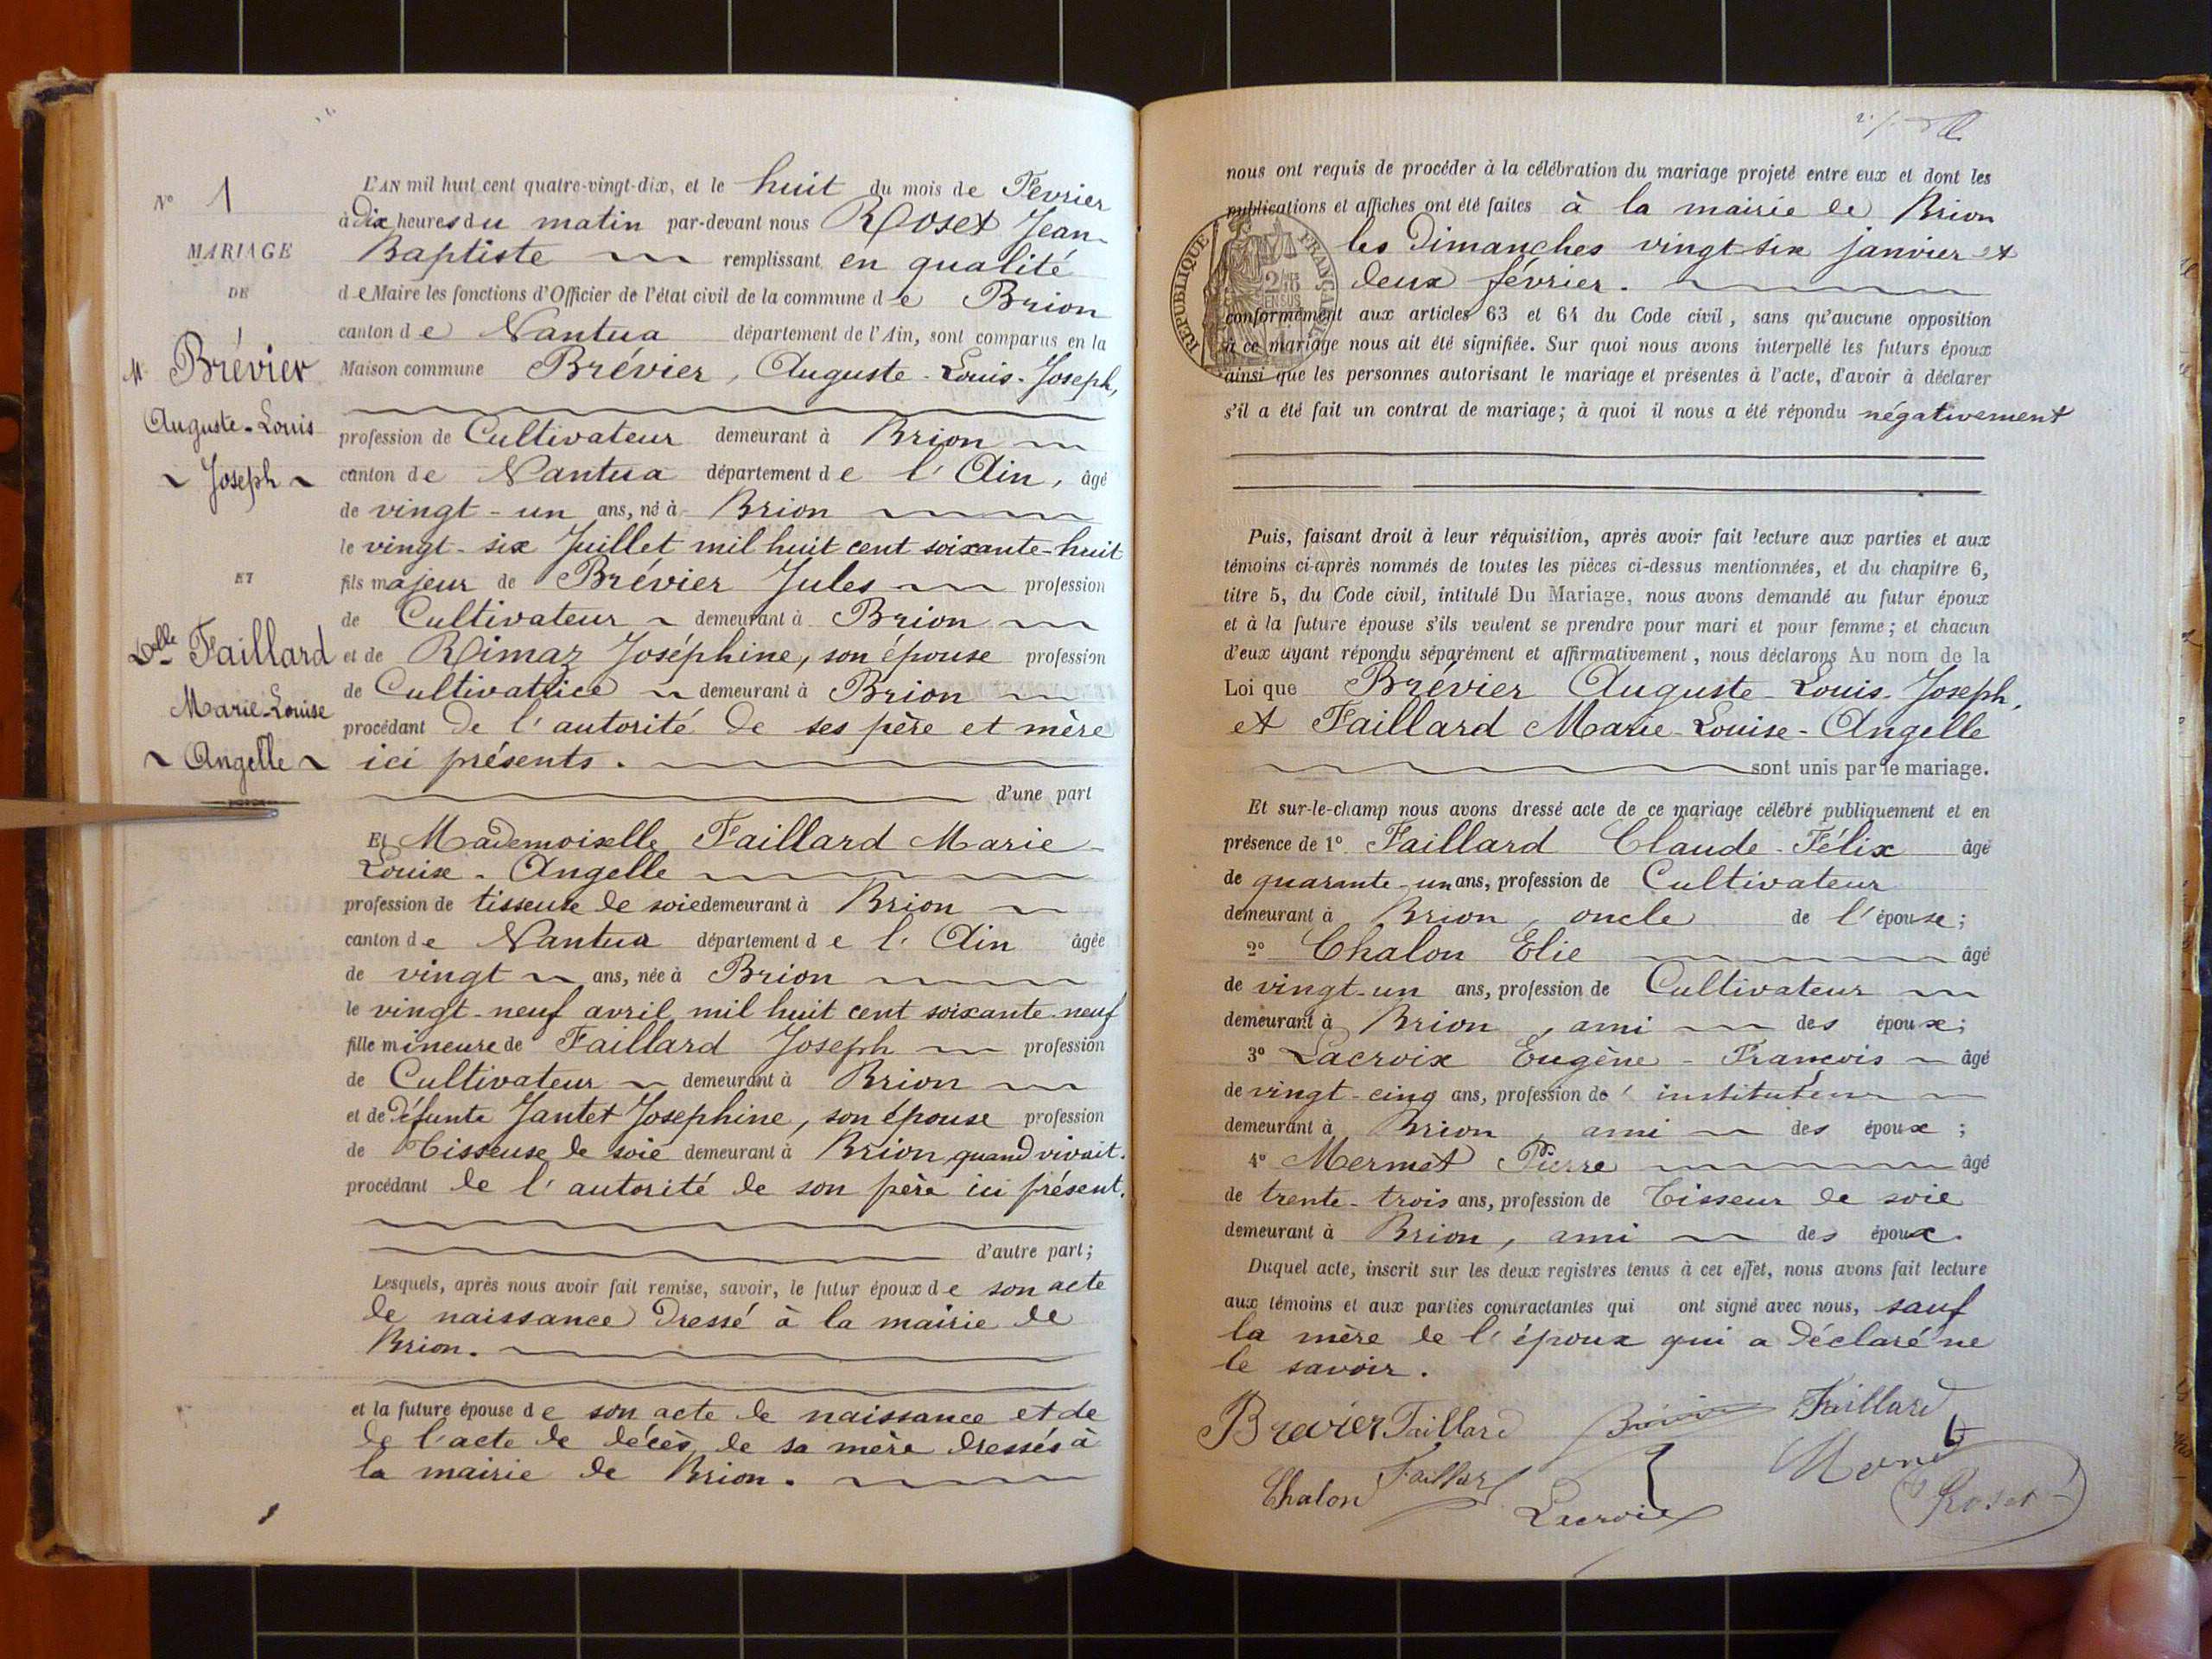 N° 1
MARIAGE
DE
M. Brévier
Auguste-Louis
Joseph
ET
Delle Faillard
Marie-Louise
Angelle
L'AN mil huit cent quatre-vingt-dix, et le huit du mois de Février
à Dix heures du matin par-devant nous Roset Jean-
Baptiste remplissant en qualité
de Maire les fonctions d'Officier de l'état civil de la commune de Brion
canton de Nantua département de l'Ain, sont comparus en la
Maison commune Brévier, Auguste-Louis-Joseph,
profession de Cultivateur demeurant à Brion
canton de Nantua département de l'Ain, âgé
de vingt-un ans, né à Brion
le vingt-six Juillet mil huit cent soixante-huit
fils majeur de Brévier Jules profession
de Cultivateur demeurant à Brion
et de Rimaz Joséphine, son épouse profession
de Cultivatrice demeurant à Brion
procédant De l'autorité de ses père et mère
ici présents.
d'une part
Et Mademoiselle Faillard Marie-
Louise-Angelle
profession de tisseuse de soie demeurant à Brion
canton de Nantua département de l'Ain âgée
de vingt ans, née à Brion
le vingt-neuf avril mil huit cent soixante-neuf
fille mineure de Faillard Joseph profession
de Cultivateur demeurant à Brion
et de Défunte Jantet Josephine, son épouse profession
de Tisseuse de soie demeurant à Brion quand vivait.
procédant de l'autorité de son père ici présent.
d'autre part;
Lesquels, après nous avoir fait remise, savoir, le futur époux de son acte
de naissance Dressé à la mairie de
Brion.
et la future épouse de son acte de naissance et de
de l'acte de décès de sa mère dressés à
la mairie de Brion.
nous ont requis de procéder à la célébration du mariage projeté entre eux et dont les
publications et affiches ont été faites à la mairie de Brion
les Dimanches vingt-six janvier et
deux février.
RÉPUBLIQUE FRANÇAISE
conformément aux articles 63 et 64 du Code civil, sans qu'aucune opposition
à ce mariage nous ait été signifiée. Sur quoi nous avons interpellé les futurs époux
ainsi que les personnes autorisant le mariage et présentes à l'acte, d'avoir à déclarer
s'il a été fait un contrat de mariage; à quoi il nous a été répondu négativement
Puis, faisant droit à leur réquisition, après avoir fait lecture aux parties et aux
témoins ci-après nommés de toutes les pièces ci-dessus mentionnées, et du chapitre 6,
titre 5, du Code civil, intitulé Du Mariage, nous avons demandé au futur époux
et à la future épouse s'ils veulent se prendre pour mari et pour femme; et chacun
d'eux ayant répondu séparément et affirmativement, nous déclarons Au nom de la
Loi que Brévier Auguste-Louis-Joseph,
et Faillard Marie-Louise-Angelle
sont unis par le mariage.
Et sur-le-champ nous avons dressé acte de ce mariage célébré publiquement et en
présence de 1° Faillard Claude-Félix âgé
de quarante-un ans, profession de Cultivateur
demeurant à Brion, oncle de l'épouse;
2° Chalon Elie âgé
de vingt-un ans, profession de Cultivateur
demeurant à Brion, ami des époux;
3° Lacroix Eugène-François âgé
de vingt-cinq ans, profession de instituteur
demeurant à Brion, ami des époux;
4° Mermet Pierre âgé
de trente-trois ans, profession de Tisseur de soie
demeurant à Brion, ami des époux.
Duquel acte, inscrit sur les deux registres tenus à cet effet, nous avons fait lecture
aux témoins et aux parties contractantes qui ont signé avec nous, sauf
la mère de l'époux qui a Déclaré ne
le savoir.
Brevier Faillard Faillard
Chalon Faillard Lacroix Roset